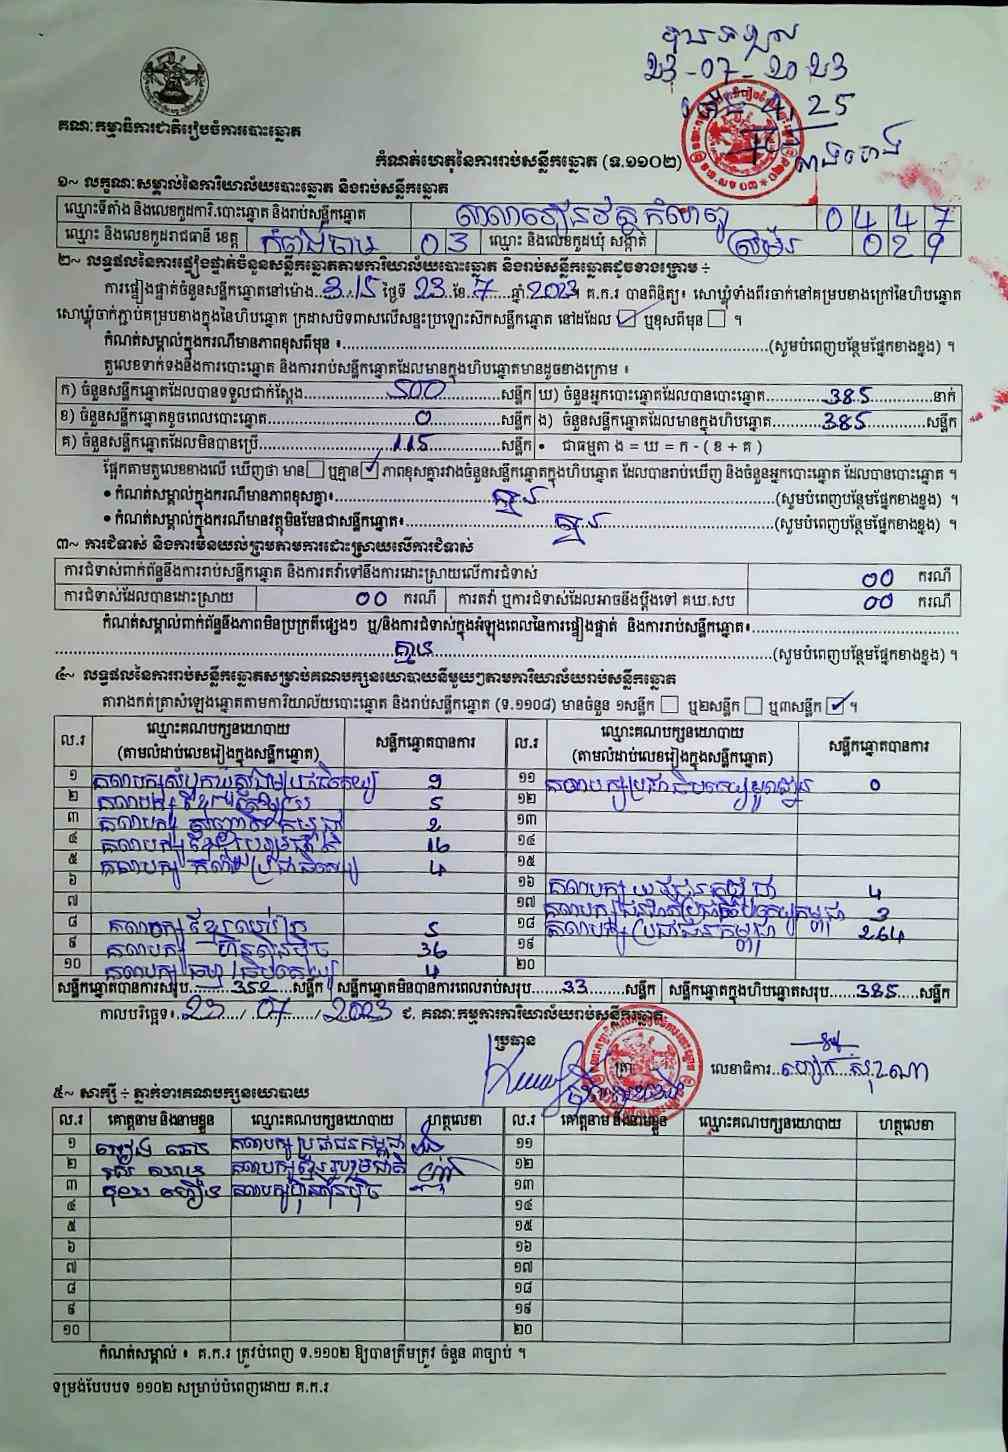 បានទទួល
23-07-2023
ម៉ោង 4:25
គណៈកម្មាធិការជាតិរៀបចំការបោះឆ្នោត
កំណត់ហេតុនៃការរាប់សន្លឹកឆ្នោត (ទ.១១០២)
១~ លក្ខណៈសម្គាល់នៃការិយាល័យបោះឆ្នោត និងរាប់សន្លឹកឆ្នោត
ឈ្មោះទីតាំង និងលេខកូដការិ.បោះឆ្នោត និងរាប់សន្លឹកឆ្នោត 0 4 4 7
ឈ្មោះ និងលេខកូដរាជធានី ខេត្ត កំពង់ចាម 0 3 ឈ្មោះ និងលេខកូដឃុំ សង្កាត់ 0 2 9
២~ លទ្ធផលនៃការផ្ទៀងផ្ទាត់ចំនួនសន្លឹកឆ្នោតតាមការិយាល័យបោះឆ្នោត និងរាប់សន្លឹកឆ្នោតដូចខាងក្រោម ÷
ការផ្ទៀងផ្ទាត់ចំនួនសន្លឹកឆ្នោតនៅម៉ោង..3:15 ថ្ងៃទី 23 ខែ 7 ឆ្នាំ 2023។ គ.ក.រ បានពិនិត្យ៖ សោឃ្លុំទាំងពីរចាក់នៅគម្របខាងក្រៅនៃហិបឆ្នោត
សោឃ្លុំចាក់ភ្ជាប់គម្របខាងក្នុងនៃហិបឆ្នោត ក្រដាសបិទពាសលើសន្ទះប្រឡោះស៊កសន្លឹកឆ្នោត នៅដដែល ☑ ឬខុសពីមុន ☐ ។
កំណត់សម្គាល់ក្នុងករណីមានភាពខុសពីមុន ៖......(សូមបំពេញបន្ថែមផ្នែកខាងខ្នង) ។
តួលេខទាក់ទងនឹងការបោះឆ្នោត និងការរាប់សន្លឹកឆ្នោតដែលមានក្នុងហិបឆ្នោតមានដូចខាងក្រោម ៖
ក) ចំនួនសន្លឹកឆ្នោតដែលបានទទួលជាក់ស្ដែង 500 សន្លឹក ឃ) ចំនួនអ្នកបោះឆ្នោតដែលបានបោះឆ្នោត 385 នាក់
ខ) ចំនួនសន្លឹកឆ្នោតខូចពេលបោះឆ្នោត 0 សន្លឹក ង) ចំនួនសន្លឹកឆ្នោតដែលមានក្នុងហិបឆ្នោត 385 សន្លឹក
គ) ចំនួនសន្លឹកឆ្នោតដែលមិនបានប្រើ 115 សន្លឹក • ជាធម្មតា ង = ឃ = ក - ( ខ + គ )
ផ្អែកតាមតួលេខខាងលើ ឃើញថា មាន ☐ ឬគ្មាន ☑ ភាពខុសគ្នារវាងចំនួនសន្លឹកឆ្នោតក្នុងហិបឆ្នោត ដែលបានរាប់ឃើញ និងចំនួនអ្នកបោះឆ្នោត ដែលបានបោះឆ្នោត ។
• កំណត់សម្គាល់ក្នុងករណីមានភាពខុសគ្នា៖ គ្មាន (សូមបំពេញបន្ថែមផ្នែកខាងខ្នង) ។
• កំណត់សម្គាល់ក្នុងករណីមានវត្ថុមិនមែនជាសន្លឹកឆ្នោត៖ គ្មាន (សូមបំពេញបន្ថែមផ្នែកខាងខ្នង) ។
៣~ ការជំទាស់ និងការមិនយល់ព្រមតាមការដោះស្រាយលើការជំទាស់
ការជំទាស់ពាក់ព័ន្ធនឹងការរាប់សន្លឹកឆ្នោត និងការតវ៉ាទៅនឹងការដោះស្រាយលើការជំទាស់ 00 ករណី
ការជំទាស់ដែលបានដោះស្រាយ 00 ករណី ការតវ៉ា ឬការជំទាស់ដែលអាចនឹងប្ដឹងទៅ គឃ.សប 00 ករណី
កំណត់សម្គាល់ពាក់ព័ន្ធនឹងភាពមិនប្រក្រតីផ្សេងៗ ឬ/និងការជំទាស់ក្នុងអំឡុងពេលនៃការផ្ទៀងផ្ទាត់ និងការរាប់សន្លឹកឆ្នោត៖
គ្មាន (សូមបំពេញបន្ថែមផ្នែកខាងខ្នង) ។
៤~ លទ្ធផលនៃការរាប់សន្លឹកឆ្នោតសម្រាប់គណបក្សនយោបាយនីមួយៗតាមការិយាល័យរាប់សន្លឹកឆ្នោត
តារាងកត់ត្រាសំឡេងឆ្នោតតាមការិយាល័យបោះឆ្នោត និងរាប់សន្លឹកឆ្នោត (ទ.១១០៨) មានចំនួន ១សន្លឹក ☐ ឬ២សន្លឹក ☐ ឬ៣សន្លឹក ☑ ។
ល.រ ឈ្មោះគណបក្សនយោបាយ (តាមលំដាប់លេខរៀងក្នុងសន្លឹកឆ្នោត) សន្លឹកឆ្នោតបានការ ល.រ ឈ្មោះគណបក្សនយោបាយ (តាមលំដាប់លេខរៀងក្នុងសន្លឹកឆ្នោត) សន្លឹកឆ្នោតបានការ
១ គណបក្សសំបុកឃ្មុំសង្គមប្រជាធិបតេយ្យ 9 ១១ គណបក្សប្រជាធិបតេយ្យមូលដ្ឋាន 0
២ គណបក្ស 5 ១២
៣ គណបក្ស កម្ពុជា 2 ១៣
៤ គណបក្ស ខ្មែររួបរួមជាតិ 16 ១៤
៥ គណបក្ស កម្លាំងប្រជាធិបតេយ្យ 4 ១៥
៦ ១៦ គណបក្ស យុវជនកម្ពុជា 4
៧ ១៧ គណបក្សជនជាតិប្រជាធិបតេយ្យកម្ពុជា 3
៨ គណបក្ស ខ្មែរឈប់រៀន 5 ១៨ គណបក្សប្រជាជនកម្ពុជា 264
៩ គណបក្ស ហ៊្វុនស៊ិនប៉ិច 36 ១៩
១០ គណបក្ស ធម្មាធិបតេយ្យ 4 ២០
សន្លឹកឆ្នោតបានការសរុប 352 សន្លឹក សន្លឹកឆ្នោតមិនបានការពេលរាប់សរុប 33 សន្លឹក សន្លឹកឆ្នោតក្នុងហិបឆ្នោតសរុប 385 សន្លឹក
កាលបរិច្ឆេទ៖ 23 / 07 / 2023 ជ. គណៈកម្មការការិយាល័យរាប់សន្លឹកឆ្នោត
ប្រធាន
ត្រា លេខាធិការ
៥~ សាក្សី ÷ ភ្នាក់ងារគណបក្សនយោបាយ
ល.រ គោត្តនាម និងនាមខ្លួន ឈ្មោះគណបក្សនយោបាយ ហត្ថលេខា ល.រ គោត្តនាម និងនាមខ្លួន ឈ្មោះគណបក្សនយោបាយ ហត្ថលេខា
១ គណបក្ស ប្រជាជនកម្ពុជា ១១
២ គណបក្សខ្មែររួបរួមជាតិ ១២
៣ គណបក្សហ៊្វុនស៊ិនប៉ិច ១៣
៤ ១៤
៥ ១៥
៦ ១៦
៧ ១៧
៨ ១៨
៩ ១៩
១០ ២០
កំណត់សម្គាល់ ៖ គ.ក.រ ត្រូវបំពេញ ទ.១១០២ ឱ្យបានត្រឹមត្រូវ ចំនួន ៣ច្បាប់ ។
ទម្រង់បែបបទ ១១០២ សម្រាប់បំពេញដោយ គ.ក.រ